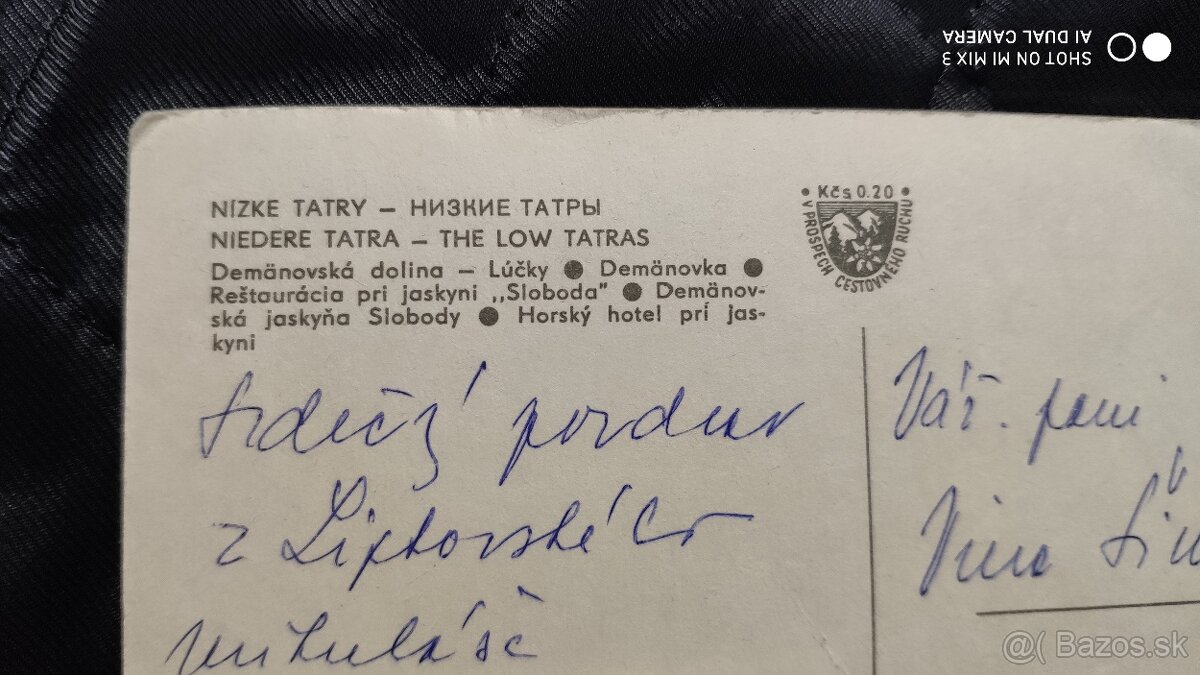 SHOT ON MI MIX 3
AI DUAL CAMERA
NÍZKE TATRY – НИЗКИЕ ТАТРЫ
NIEDERE TATRA – THE LOW TATRAS
Demänovská dolina – Lúčky ● Demänovka ●
Reštaurácia pri jaskyni „Sloboda" ● Demänov-
ská jaskyňa Slobody ● Horský hotel prí jas-
kyni
• Kčs 0.20 •
V PROSPECH CESTOVNÉHO RUCHU
Srdečný pozdrav
z Liptovského
Mikuláš
Váž. pani
@( Bazos.sk